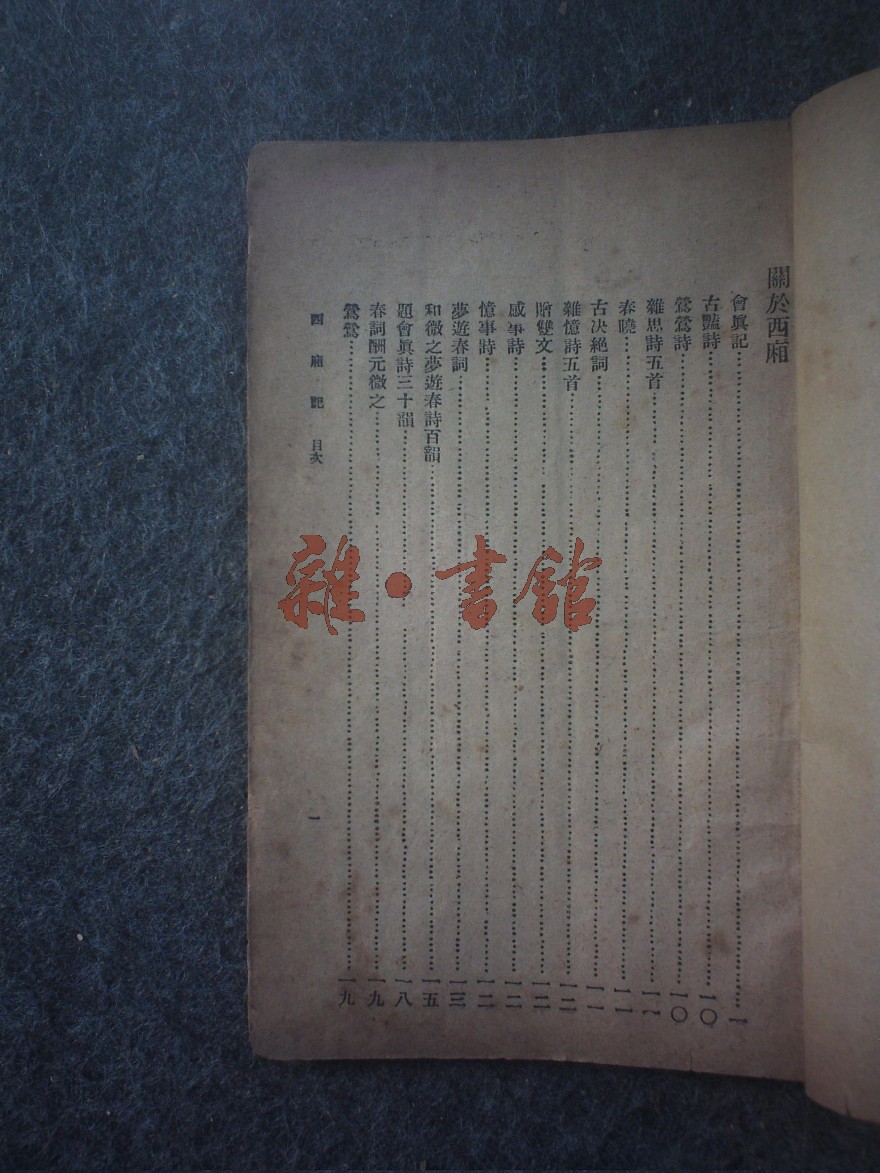 關於西廂
會眞記……一
古豔詩……一〇
鶯鶯詩……一〇
雜思詩五首……一一
春曉……一一
古决絕詞……一一
雜憶詩五首……一二
贈雙文……一二
感事詩……一二
憶事詩……一二
夢遊春詞……一三
和微之夢遊春詩百韻……一五
題會眞詩三十韻……一八
春詞酬元微之……一九
鶯鶯……一九
西廂記 目次 一
雜·書館